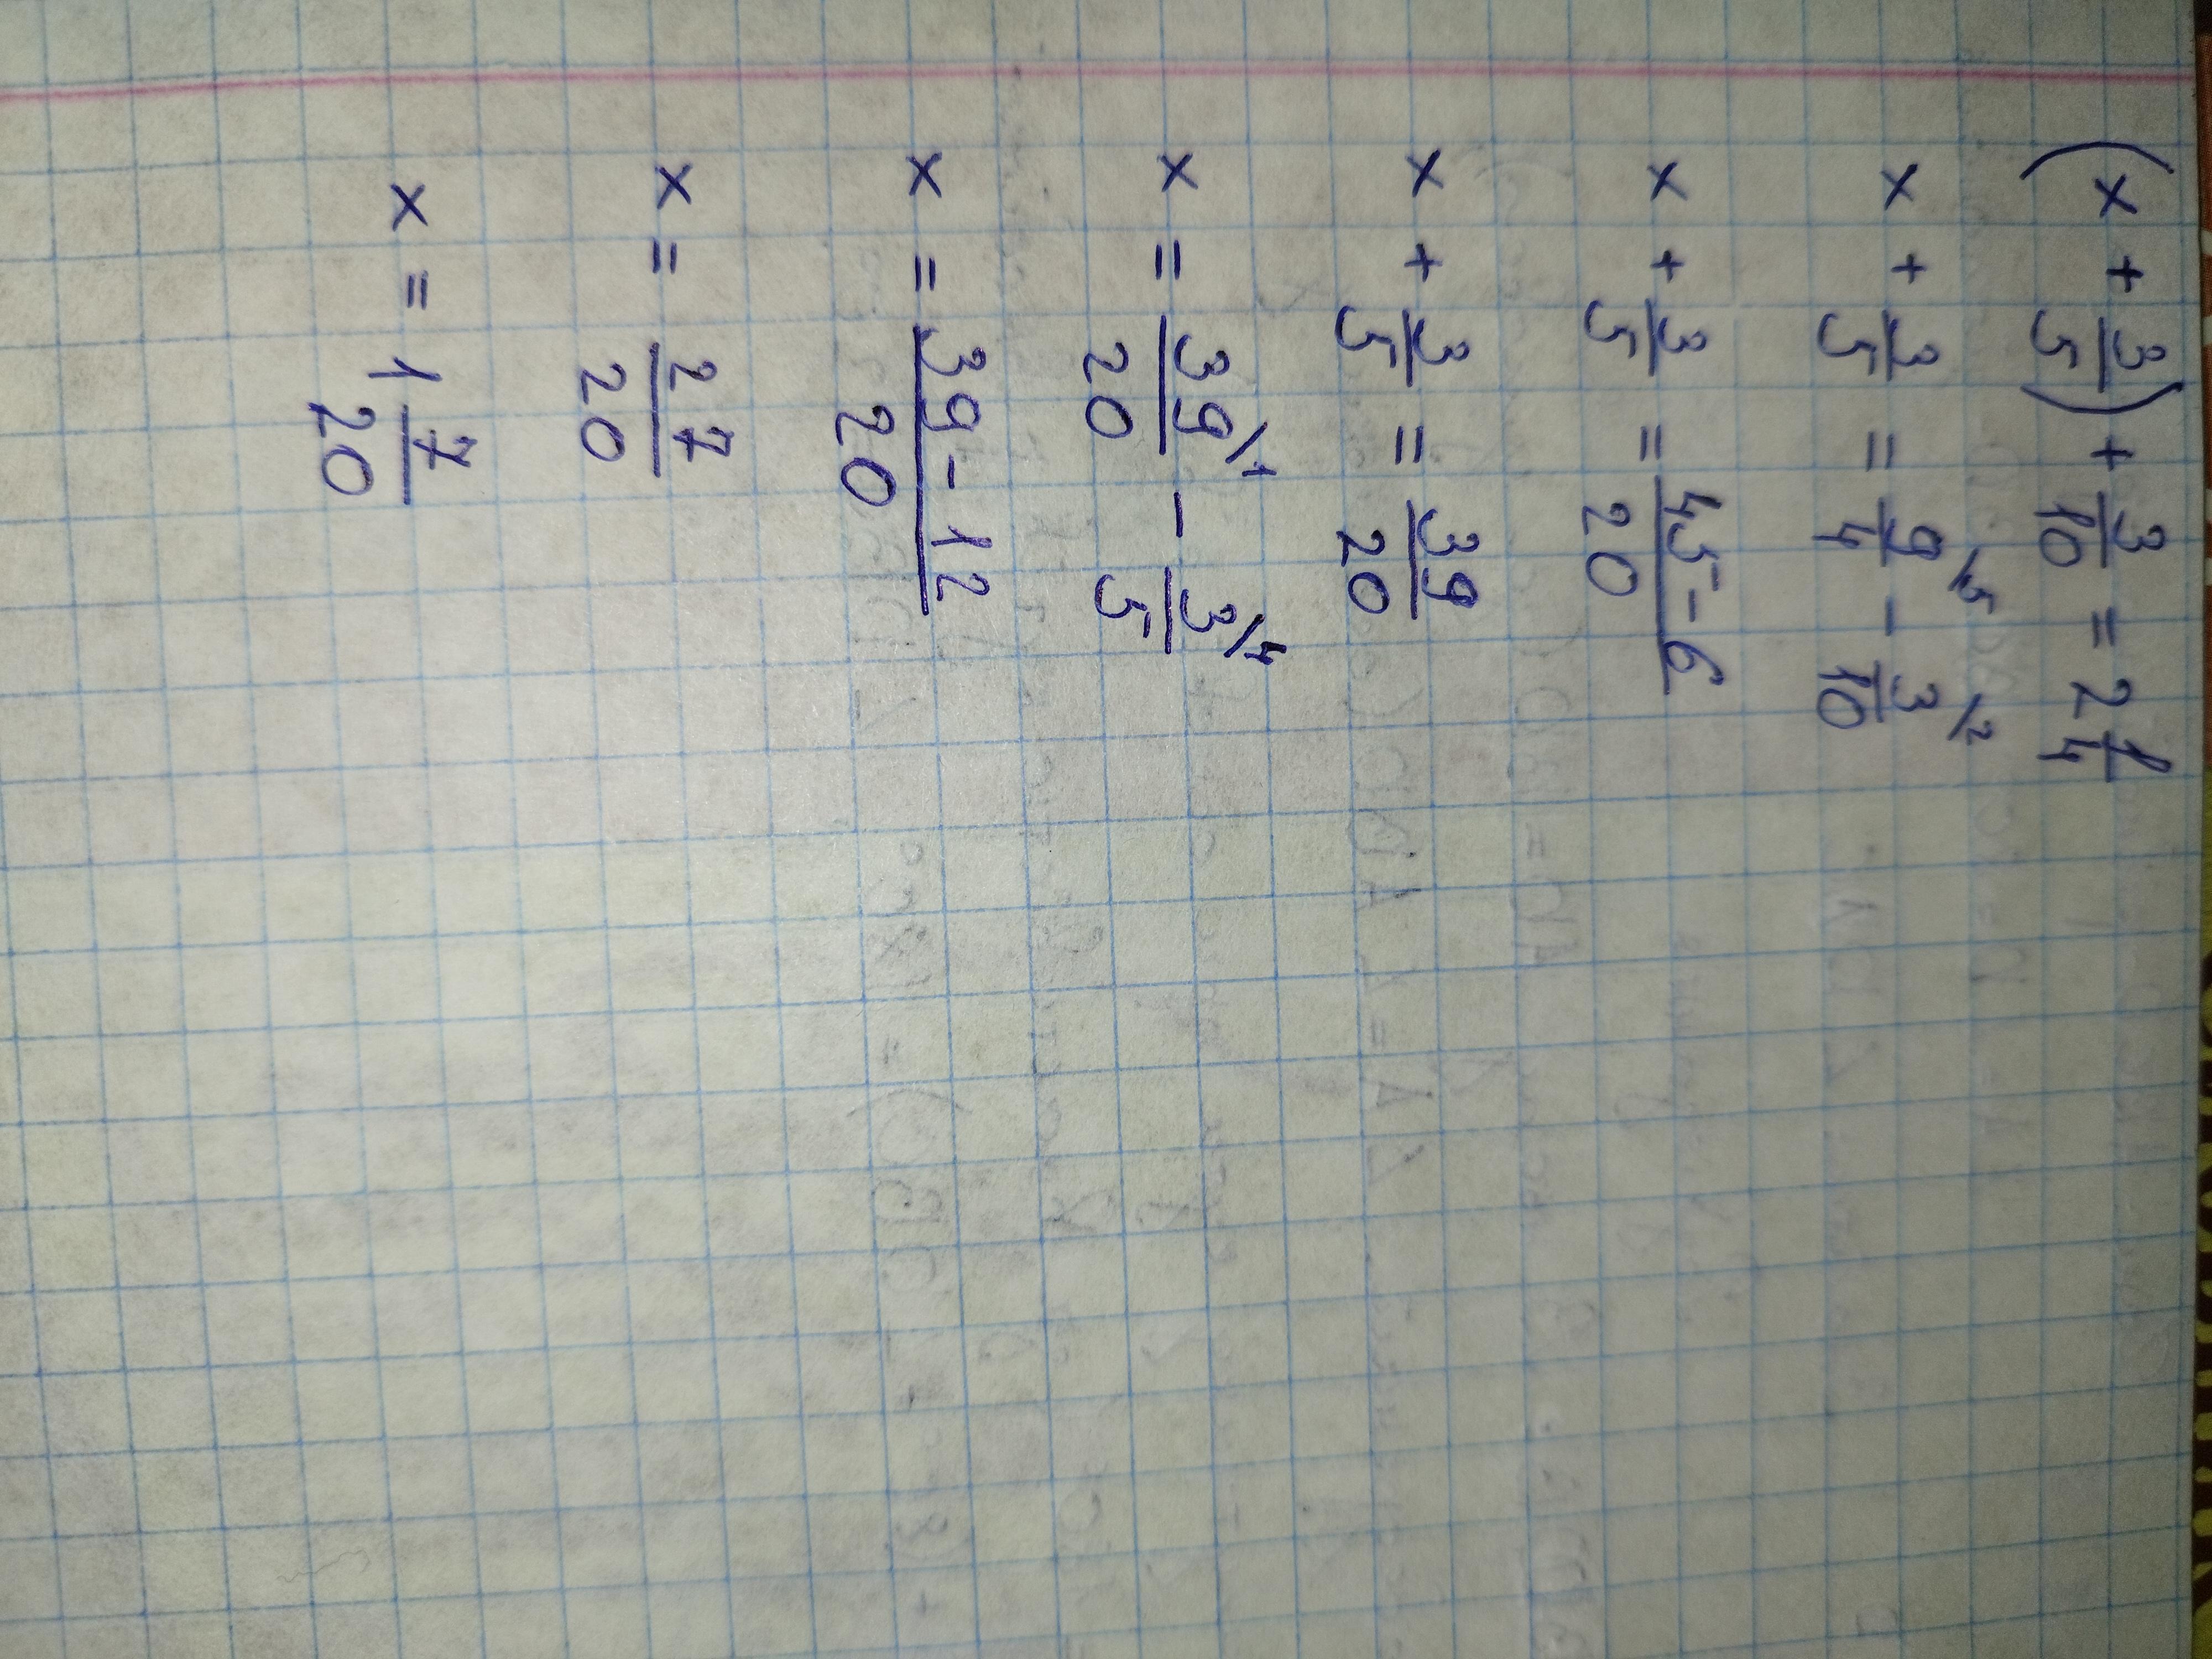 (x + 3/5) + 3/10 = 2 1/4
x + 3/5 = 9/4 \5 - 3/10 \2
x + 3/5 = 45-6/20
x + 3/5 = 39/20
x = 39/20 \1 - 3/5 \4
x = 39-12/20
x = 27/20
x = 1 7/20